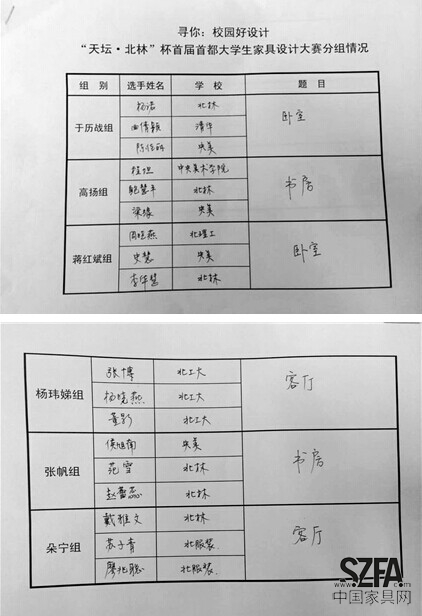 寻你：校园好设计
“天坛·北林”杯首届首都大学生家具设计大赛分组情况
组 别 选手姓名 学 校 题 目
于历战组 杨诺 北林 卧室
清华
央美
高扬组 桂坦 中央美术学院 书房
鲍慧平 北林
梁缘 央美
蒋红斌组 周晓燕 北理工 卧室
史慧 央美
李华慧 北林
杨玮娣组 张博 北工大 客厅
杨晓燕 北工大
董影 北工大
张帆组 侯旭南 央美 书房
范雪 北林
赵蕾蕊 北林
朵宁组 戴雅文 北林 客厅
苏子青 北服装
廖兆聪 北服装
SZFA.com
中国家具网